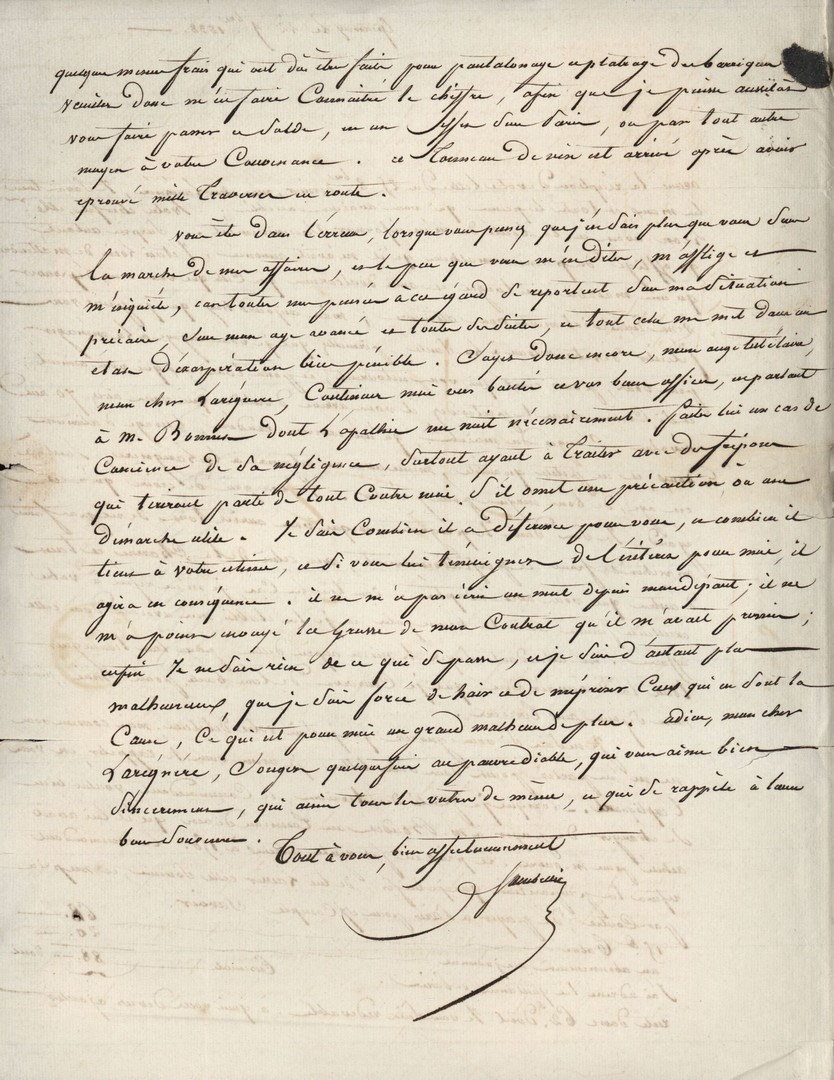 quelques menus frais qui ont dû être faits pour pantalonage et platrage des barriques
veuillez donc m'en faire Connaitre le chiffre, afin que je puisse aussitôt
vous faire passer ce solde, en un effet sur Paris, ou par tout autre
moyen à votre Convenance. ce Tonneau de vin est arrivé après avoir
eprouvé mille Traverses en route.
vous êtes dans l'erreur, lorsque vous pensez que j'en sais plus que vous sur
la marche de mes affaires, et le peu que vous m'en dites, m'afflige et
m'inquiète, car toutes mes pensées à cet égard se reportent sur ma situation
précaire, sur mon age avancé et toutes ses suites, et tout cela me met dans un
état d'exaspération bien pénible. Soyez donc encore, mon ange tutélaire,
mon cher Larignère, Continuez moi vos bontés et vos bons offices, en parlant
à Mr Bonnus dont l'apathie me nuit nécessairement. faites lui un cas de
Conscience de sa négligence, surtout ayant à Traiter avec des fripons
qui tireront parti de tout Contre moi s'il omet une précaution où une
démarche utile. Je sais Combien il a déférence pour vous, et combien il
tient à votre estime, et si vous lui témoignez de l'intérêt pour moi, il
agira en conséquence. il ne m'a pas écrit un mot depuis mon départ; il ne
m'a point envoyé la Grosse de mon Contrat qu'il m'avait promise;
enfin Je ne sais rien de ce qui se passe, et je suis d'autant plus
malheureux, que je suis forcé de hair et de mépriser Ceux qui en sont la
Cause, Ce qui est pour moi un grand malheur de plus. adieu, mon cher
Larignère, Songez quelquefois au pauvre diable, qui vous aime bien
sincerement, qui aime tous les votres de même, et qui se rappèle à leur
bon souvenir.
Tout à vous, bien affectueusement